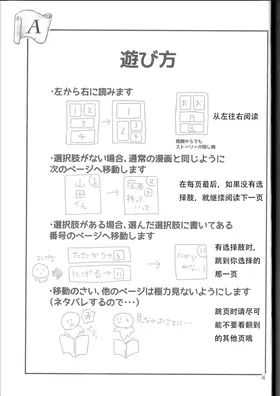 A
遊び方
・左から右に読みます
1 2
3
4
1
2 3
お お
た
は
両側からでも
ストーリーが同じ時
从左往右阅读
・選択肢がない場合、通常の漫画と同じように
次のページへ移動します
山田くん
在每页最后，如果没有选
择肢，就继续阅读下一页
・選択肢がある場合、選んだ選択肢に書いてある
番号のページへ移動します
たたかう
にげる
11
有选择肢时，
跳到你选择的
那一页
・移動のさい、他のページは極力見ないようにします
(ネタバレするので・・・)
跳页时请尽可
能不要看翻到
的其他页哦
4